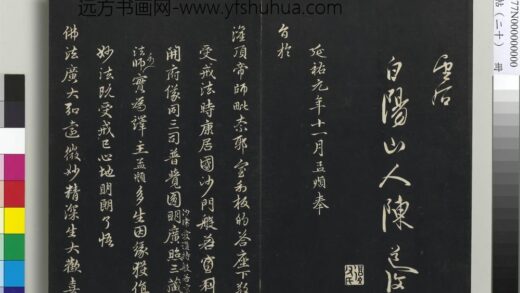 远方书画网- www.yfshuhua.com
白陽山人陳道復
延祐元年十一月孟頫奉
旨於
灌頂帝師毗奈耶室利板的答座下敬
受戒法時康居國沙門般若室利
開府儀同三司普覺圓明廣照三藏
法師實為譯主孟頫多生因緣獲值
妙法既受戒已心地開朗了悟
佛法廣大弘遠微妙精深生大歡喜
77N0000000000
帖（二十）